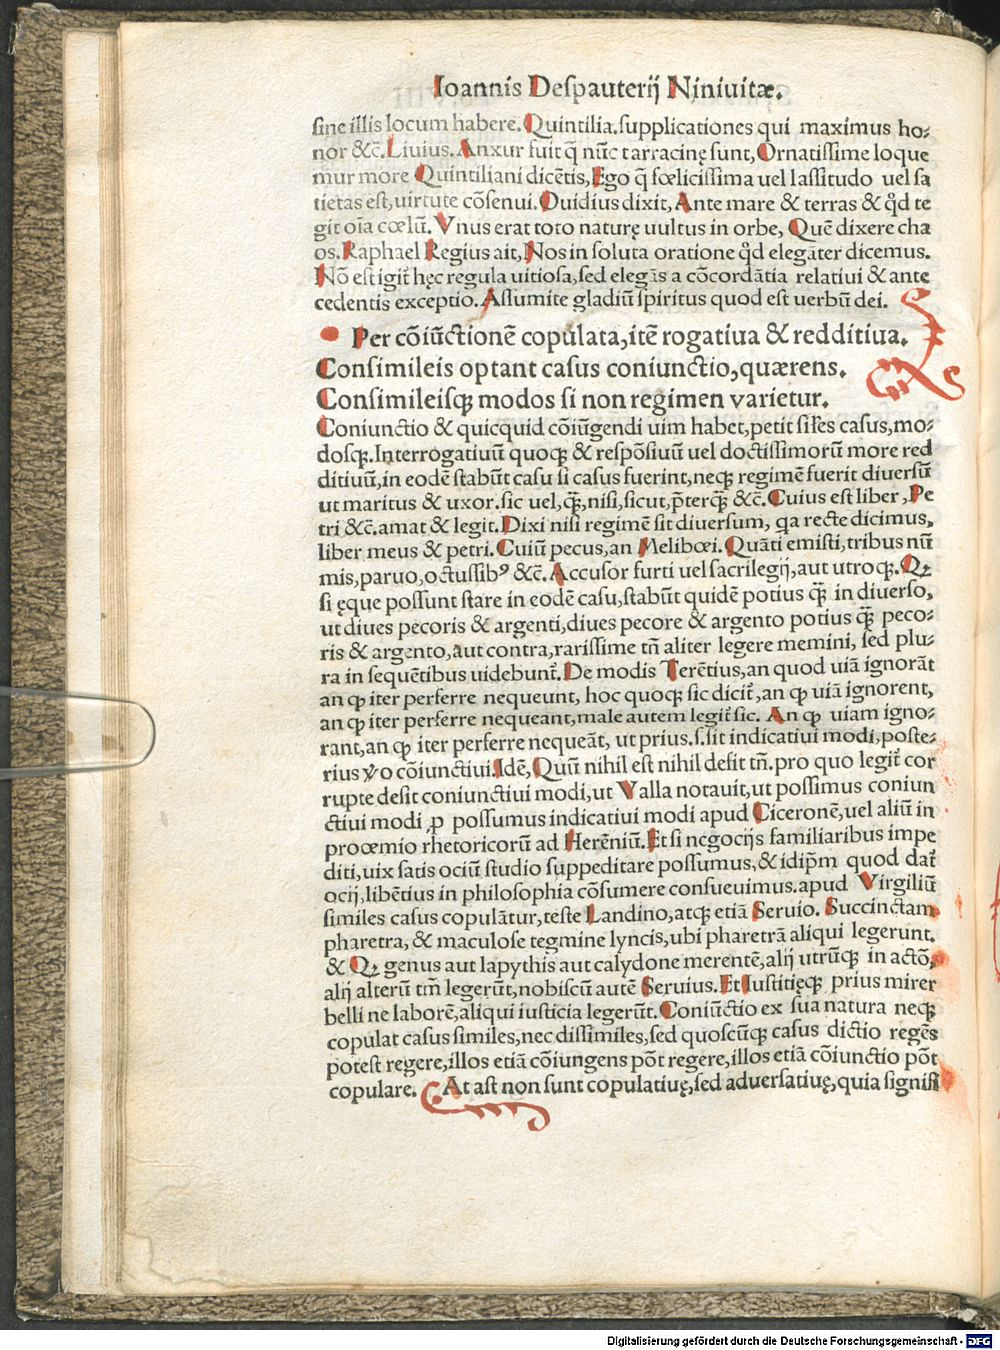 Ioannis Despauterij Niniuitæ.
sine illis locum habere. Quintilia. supplicationes qui maximus ho⸗
nor &c̄. Liuius. Anxur fuit q̄ nūc tarracinę sunt, Ornatissime loque
mur more Quintiliani dicētis, Ego q̄ fœlicissima uel lassitudo uel sa
tietas est, uirtute cōsenui. Ouidius dixit, Ante mare & terras & qd̊ te
git oīa cœlū. Vnus erat toto naturę uultus in orbe, Quē dixere cha
os. Raphael Regius ait, Nos in soluta oratione qd̊ elegāter dicemus.
Nō est igit̄ hęc regula uitiosa, sed elegās a cōcordātia relatiui & ante
cedentis exceptio. Assumite gladiū spiritus quod est uerbū dei.
Per cōiūctionē copulata, itē rogatiua & redditiua.
Consimileis optant casus coniunctio, quærens.
Consimileisqꝫ modos si non regimen varietur.
Coniunctio & quicquid cōiūgendi uim habet, petit sil̄es casus, mo⸗
dosqꝫ. Interrogatiuū quoqꝫ & respōsiuū uel doctissimorū more red
ditiuū, in eodē stabūt casu si casus fuerint, neqꝫ regimē fuerit diuersū
ut maritus & uxor. sic uel, qꝫ̄, nisi, sicut, p̄terqꝫ̄ &c̄. Cuius est liber, Pe
tri &c̄. amat & legit. Dixi nisi regimē sit diuersum, qa recte dicimus,
liber meus & petri. Cuiū pecus, an Melibœi. Quāti emisti, tribus nū
mis, paruo, octussibꝰ &c̄. Accusor furti uel sacrilegij, aut utroqꝫ. Qꝛ
si ęque possunt stare in eodē casu, stabūt quidē potius qꝫ̄ in diuerso,
ut diues pecoris & argenti, diues pecore & argento potius qꝫ̄ peco⸗
ris & argento, aut contra, rarissime tn̄ aliter legere memini, sed plu⸗
ra in sequētibus uidebunt̄. De modis Terētius, an quod uiā ignorāt
an ꝙ iter perferre nequeunt, hoc quoqꝫ sic dicit̄, an ꝙ uiā ignorent,
an ꝙ iter perferre nequeant, male autem legit̄ sic. An ꝙ uiam igno⸗
rant, an ꝙ iter perferre nequeāt, ut prius. s. sit indicatiui modi, poste⸗
rius ꝟo cōiunctiui. Idē, Quū nihil est nihil desit tn̄. pro quo legit̄ cor
rupte desit coniunctiui modi, ut Valla notauit, ut possimus coniun
ctiui modi ꝓ possumus indicatiui modi apud Ciceronē, uel aliū in
proœmio rhetoricorū ad Herēniū. Et si negocijs familiaribus impe
diti, uix satis ociū studio suppeditare possumus, & idip̄m quod dat̄
ocij, libētius in philosophia cōsumere consueuimus. apud Virgiliū
similes casus copulātur, teste Landino, atqꝫ etiā Seruio. Succinctam
pharetra, & maculose tegmine lyncis, ubi pharetrā aliqui legerunt.
& Qꝛ genus aut lapythis aut calydone merentē, alij utrūqꝫ in actō,
alij alterū tm̄ legerūt, nobiscū autē Seruius. Et Iustitięqꝫ prius mirer
belli ne laborē, aliqui iusticia legerūt. Coniūctio ex sua natura neqꝫ
copulat casus similes, nec dissimiles, sed quoscūqꝫ casus dictio regēs
potest regere, illos etiā cōiungens pōt regere, illos etiā cōiunctio pōt
copulare. At ast non sunt copulatiuę, sed aduersatiuę, quia signifi
Digitalisierung gefördert durch die Deutsche Forschungsgemeinschaft - DFG